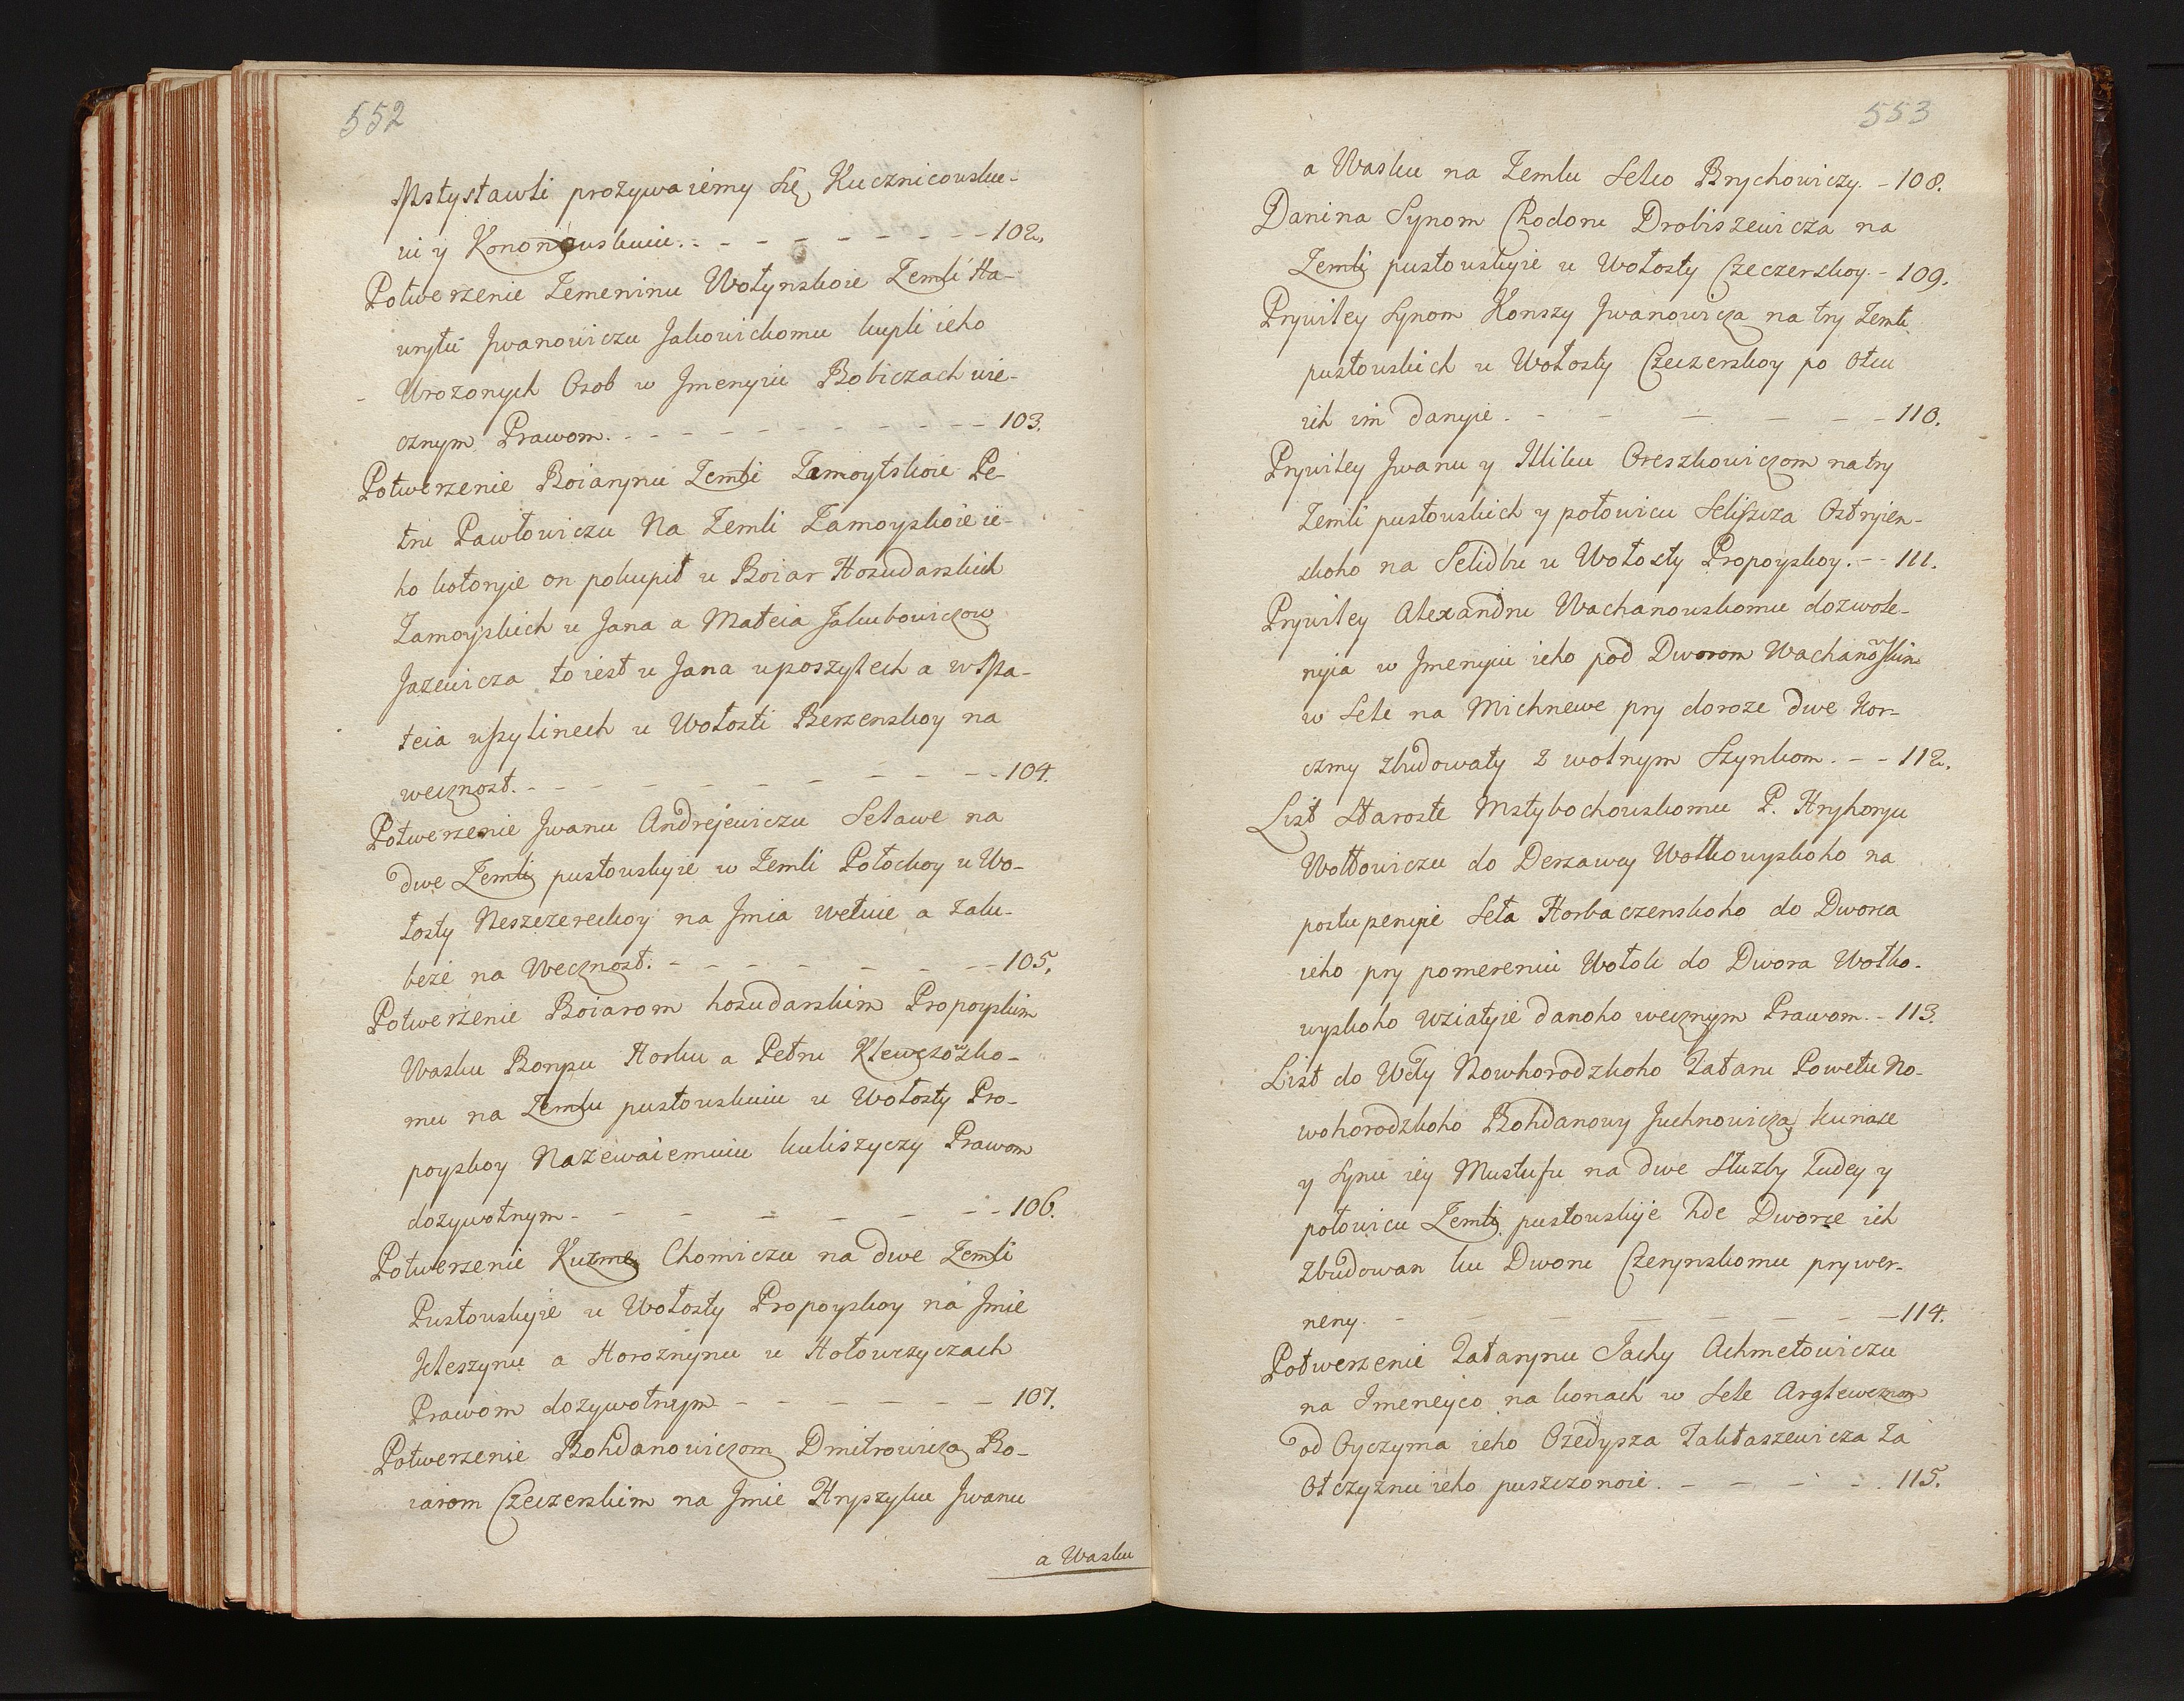 552
Mstysławli prozywaiemy się Kucznicowsku-
iu y Kononowskuiu. - - - - - - - - 102.
Potwerzenie Zemeninu Wołynskoie Zemli Ha-
wryłu Jwanowiczu Jakowickomu kupli ieho
Urożonych Osob w Jmenyiu Bobiczach wie-
cznym Prawom. - - - - - - - - - 103.
Potwerzenie Boiarynu Zemli Zamoytskoie Pe-
tru Pawłowiczu Na Zemli Zamoyskoie ie-
ho kotoryie on pokupił u Boiar Hosudarskich
Zamoyskich u Jana a Mateia Jakubowiczow
Jazewicza to iest u Jana uposzylech a u Ma-
teia upylinech u Wołosti Berzenskoy na
wecznost. - - - - - - - - 104.
Potwerzenie Jwanu Andrejewiczu Seławe na
dwe Zemli pustowskyie w Zemli Połockoy u Wo-
łosty Neszczereckoy na Jmia wełuie a zalu-
beże na Wecznost. - - - - - - - - 105.
Potwerżenie Boiarom hosudarskim Propoyskim
Wasku Borysu Horku a Petru Klewczowsko-
mu na Zemlu pustowskuiu u Wołosty Pro-
poyskoy Nazewaiemuiu kuliszyczy Prawom
dozywotnym - - - - - - - 106.
Potwerzenie Kuzme Chomiczu na dwe Zemli
Pustowskyie u Wołosty Propoyskoy na Jmie
Jcleszynu a Horoznynu u Hołowczyczach
Prawom dozywotnym - - - - - - - 107.
Potwerzenie Bohdanowiczom Dmitrowicza Bo-
iarom Czeczerskim na Jmie Hryszyku Jwanu
a Wasku
553
a Wasku na Zemlu Selco Brychowiczy. - 108.
Danina Synom Rodonu Drobiszewicza na
Zemli pustouskyie u Wołosty Czeczerskoy. - 109.
Prywiley Synom Konszy Jwanowicza na try Zemli
pustouskich u Wołosty Czeczerskoy po otcu
ich im danyie. - - - - - - 110.
Prywiley Jwanu y Illiku Oreszkowiczom na try
Zemli pustouskich y połowicu Seliszcza Ostryien-
skoho na Selidbu u Wołosty Propoyskoy. - - 111.
Prywiley Alexandru Wachanouskomu dozwole-
nyia w Jmenyiu ieho pod Dworom Wachanowskim
w Sele na Michnewe pry doroze dwe Kor-
czmy zbudowaty z wolnym Szynkom. - - 112.
List Staroste Mstybochouskomu P. Hryhoryu
Wołłowiczu do Derzawcy Wołkowyskoho na
postupenyie Seła Horbaczenskoho do Dworca
ieho pry pomereniu Wołok do Dwora Wołko-
wyskoho wziatyie danoho wecznym Prawom. - 113.
List do Wdy Nowhorodzkoho Tataru Powetu No-
wohorodzkoho Bohdanowy Juchnowicza Kuniase
y Synu iey Mustufu na dwe Służby Ludey y
połowicu Zemli pustouskije hde Dworce ich
Zbudowan ku Dworu Czerynskomu prywer-
neny. - - - - - - - - 114.
Potwerzenie Tatarynu Jachy Achmetowiczu
na Jmeneyco na konach w Sele Arglewcznom
od Oyczyma ieho Ozedysza Taktaszewicza za
Otczyznu ieho puszczonoie. - - - - . 115.